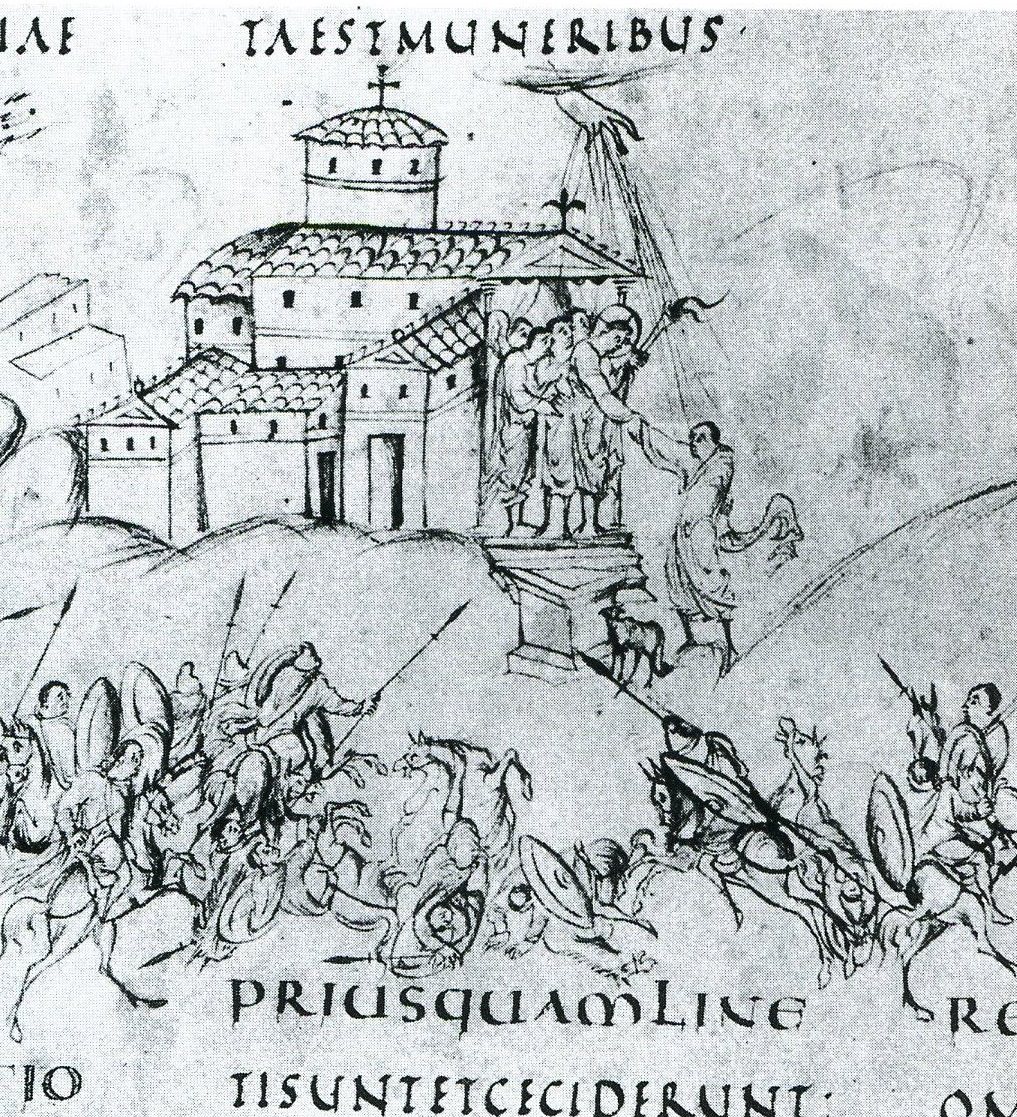 IAE TAESTMUNERIBUS·
PRIUSQUAMLINE RE
TIO TISUNTETCECIDERUNT·